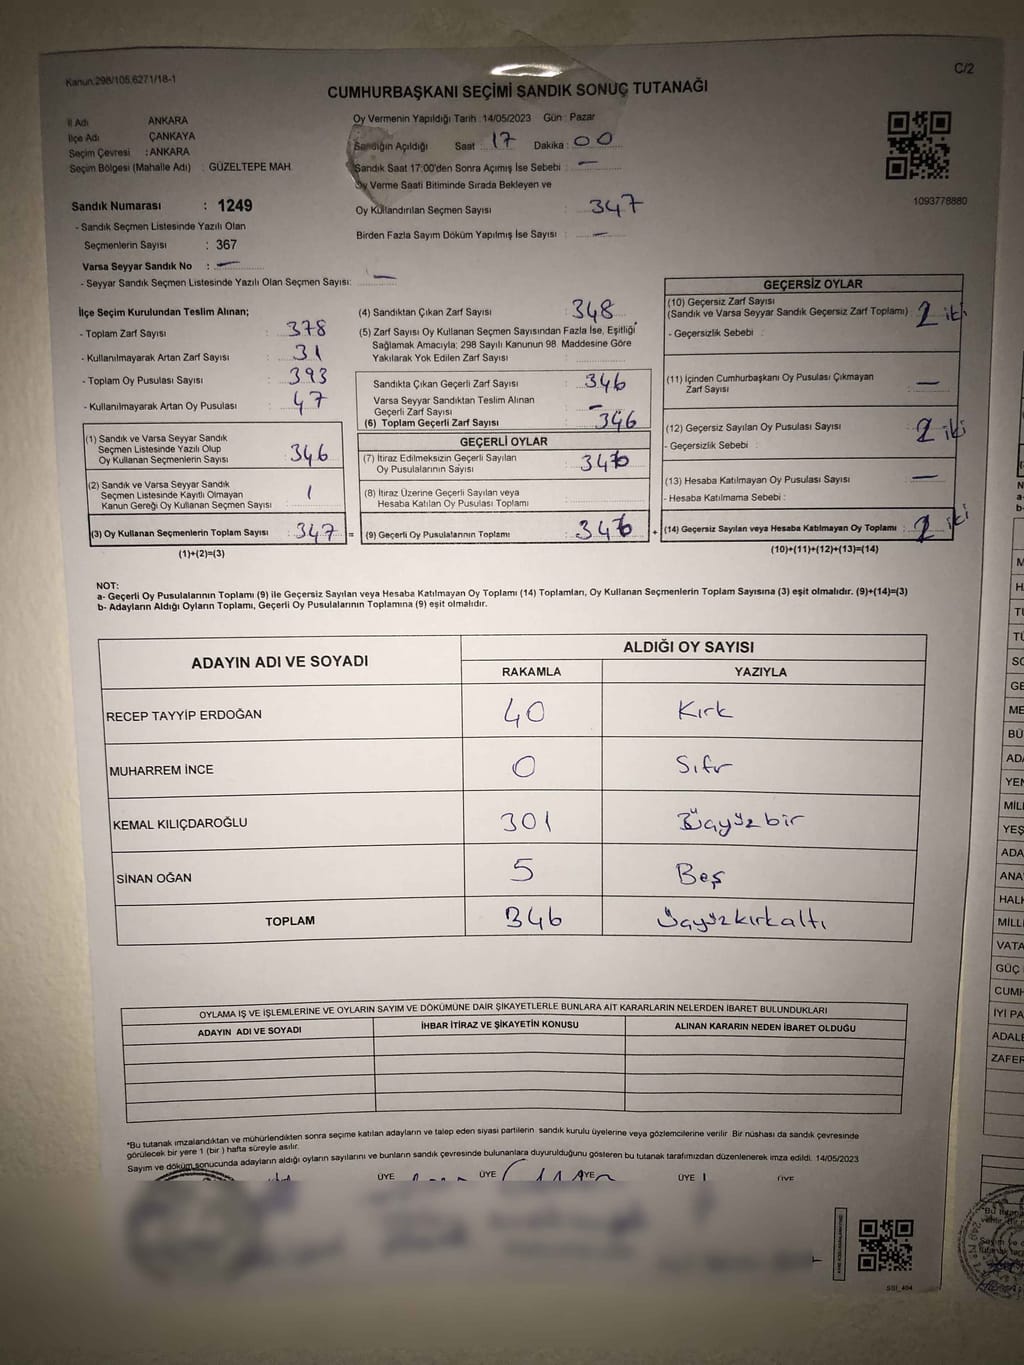 Kanun:298/105,6271/18-1
C/2
CUMHURBAŞKANI SEÇİMİ SANDIK SONUÇ TUTANAĞI
İl Adı ANKARA
İlçe Adı ÇANKAYA
Seçim Çevresi : ANKARA
Seçim Bölgesi (Mahalle Adı) : GÜZELTEPE MAH.
Oy Vermenin Yapıldığı Tarih : 14/05/2023 Gün : Pazar
Sandığın Açıldığı Saat : 17 Dakika : 00
Sandık Saat 17:00'den Sonra Açımış İse Sebebi : —
Oy Verme Saati Bitiminde Sırada Bekleyen ve
Oy Kullandırılan Seçmen Sayısı : 347
Birden Fazla Sayım Döküm Yapılmış İse Sayısı : —
1093778880
Sandık Numarası : 1249
- Sandık Seçmen Listesinde Yazılı Olan
Seçmenlerin Sayısı : 367
Varsa Seyyar Sandık No : —
- Seyyar Sandık Seçmen Listesinde Yazılı Olan Seçmen Sayısı: —
İlçe Seçim Kurulundan Teslim Alınan;
- Toplam Zarf Sayısı : 378
- Kullanılmayarak Artan Zarf Sayısı : 31
- Toplam Oy Pusulası Sayısı : 393
- Kullanılmayarak Artan Oy Pusulası : 47
(1) Sandık ve Varsa Seyyar Sandık
Seçmen Listesinde Yazılı Olup
Oy Kullanan Seçmenlerin Sayısı : 346
(2) Sandık ve Varsa Seyyar Sandık
Seçmen Listesinde Kayıtlı Olmayan
Kanun Gereği Oy Kullanan Seçmen Sayısı : 1
(3) Oy Kullanan Seçmenlerin Toplam Sayısı : 347 =
(1)+(2)=(3)
(4) Sandıktan Çıkan Zarf Sayısı : 348
(5) Zarf Sayısı Oy Kullanan Seçmen Sayısından Fazla İse, Eşitliği
Sağlamak Amacıyla; 298 Sayılı Kanunun 98. Maddesine Göre
Yakılarak Yok Edilen Zarf Sayısı :
Sandıkta Çıkan Geçerli Zarf Sayısı : 346
Varsa Seyyar Sandıktan Teslim Alınan
Geçerli Zarf Sayısı : —
(6) Toplam Geçerli Zarf Sayısı : 346
GEÇERLİ OYLAR
(7) İtiraz Edilmeksizin Geçerli Sayılan
Oy Pusulalarının Sayısı : 346
(8) İtiraz Üzerine Geçerli Sayılan veya
Hesaba Katılan Oy Pusulası Toplamı :
(9) Geçerli Oy Pusulalarının Toplamı : 346 +
GEÇERSİZ OYLAR
(10) Geçersiz Zarf Sayısı
(Sandık ve Varsa Seyyar Sandık Geçersiz Zarf Toplamı) : 2 iki
- Geçersizlik Sebebi :
(11) İçinden Cumhurbaşkanı Oy Pusulası Çıkmayan
Zarf Sayısı : —
(12) Geçersiz Sayılan Oy Pusulası Sayısı : 2 iki
- Geçersizlik Sebebi :
(13) Hesaba Katılmayan Oy Pusulası Sayısı : —
- Hesaba Katılmama Sebebi :
(14) Geçersiz Sayılan veya Hesaba Katılmayan Oy Toplamı : 2 iki
(10)+(11)+(12)+(13)=(14)
NOT:
a- Geçerli Oy Pusulalarının Toplamı (9) ile Geçersiz Sayılan veya Hesaba Katılmayan Oy Toplamı (14) Toplamları, Oy Kullanan Seçmenlerin Toplam Sayısına (3) eşit olmalıdır. (9)+(14)=(3)
b- Adayların Aldığı Oyların Toplamı, Geçerli Oy Pusulalarının Toplamına (9) eşit olmalıdır.
ADAYIN ADI VE SOYADI
ALDIĞI OY SAYISI
RAKAMLA YAZIYLA
RECEP TAYYİP ERDOĞAN 40 Kırk
MUHARREM İNCE 0 Sıfır
KEMAL KILIÇDAROĞLU 301 Üçyüzbir
SİNAN OĞAN 5 Beş
TOPLAM 346 Üçyüzkırkaltı
OYLAMA İŞ VE İŞLEMLERİNE VE OYLARIN SAYIM VE DÖKÜMÜNE DAİR ŞİKAYETLERLE BUNLARA AİT KARARLARIN NELERDEN İBARET BULUNDUKLARI
ADAYIN ADI VE SOYADI İHBAR İTİRAZ VE ŞİKAYETİN KONUSU ALINAN KARARIN NEDEN İBARET OLDUĞU
*Bu tutanak imzalandıktan ve mühürlendikten sonra seçime katılan adayların ve talep eden siyasi partilerin sandık kurulu üyelerine veya gözlemcilerine verilir. Bir nüshası da sandık çevresinde
görülecek bir yere 1 (bir ) hafta süreyle asılır.
Sayım ve döküm sonucunda adayların aldığı oyların sayılarını ve bunların sandık çevresinde bulunanlara duyurulduğunu gösteren bu tutanak tarafımızdan düzenlenerek imza edildi. 14/05/2023
ÜYE ÜYE ÜYE ÜYE ÜYE